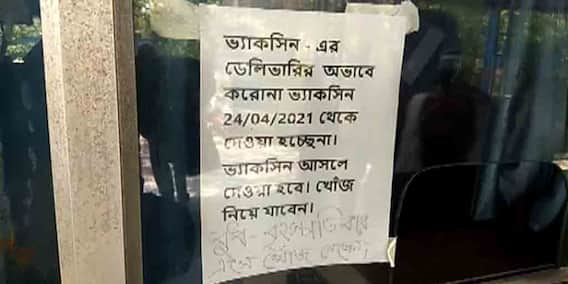 ভ্যাকসিন - এর
ডেলিভারির অভাবে
করোনা ভ্যাকসিন
24/04/2021 থেকে
দেওয়া হচ্ছেনা।
ভ্যাকসিন আসলে
দেওয়া হবে। খোঁজ
নিয়ে যাবেন।
বুধ - বৃহস্পতিবার
এসে খোঁজ নেবেন।